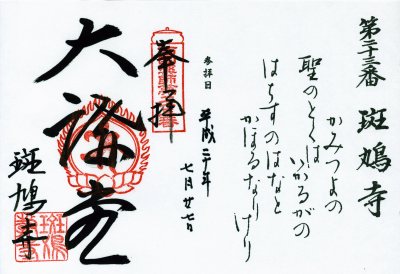 第二十三番 斑鳩寺
かみつよの
聖のとくは
いかるがの
はちすのはなと
かほるなりけり
参拝日
平成二十年
七月廿七日
奉拝
大講堂
斑鳩寺